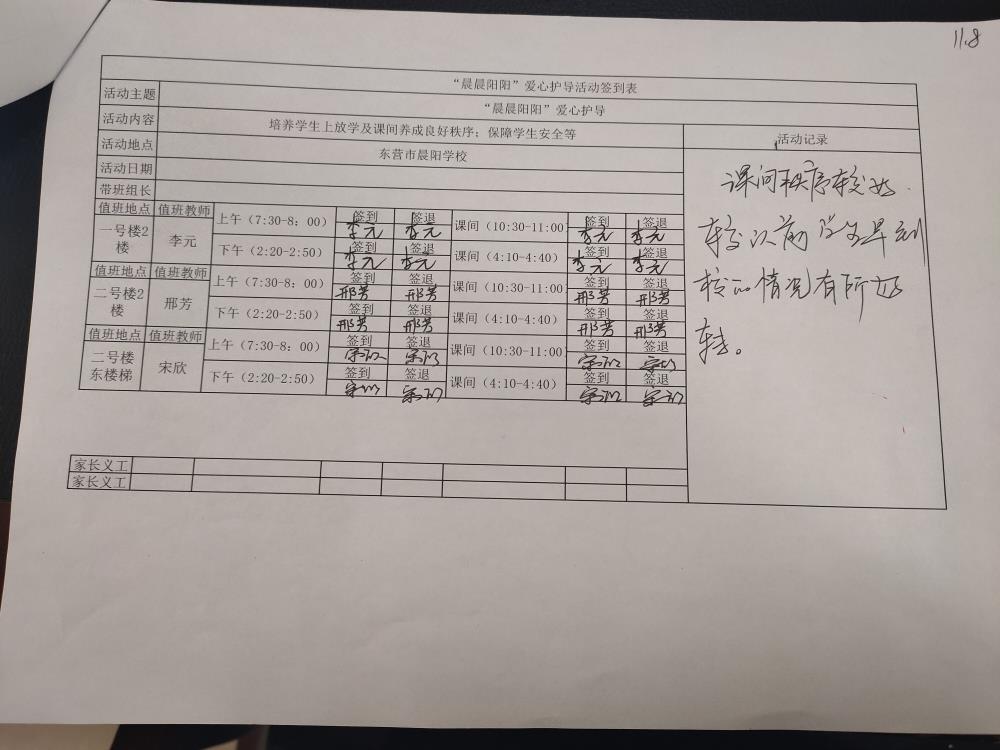 11.8
“晨晨阳阳”爱心护导活动签到表
活动主题 “晨晨阳阳”爱心护导
活动内容 培养学生上放学及课间养成良好秩序；保障学生安全等 活动记录
活动地点 东营市晨阳学校
活动日期
带班组长
值班地点 值班教师 上午（7:30-8：00） 签到 签退 课间（10:30-11:00） 签到 签退
李元 李元 李元 李元
一号楼2楼 李元 下午（2:20-2:50） 签到 签退 课间（4:10-4:40） 签到 签退
李元 李元 李元 李元
值班地点 值班教师 上午（7:30-8：00） 签到 签退 课间（10:30-11:00） 签到 签退
邢芳 邢芳 邢芳 邢芳
二号楼2楼 邢芳 下午（2:20-2:50） 签到 签退 课间（4:10-4:40） 签到 签退
邢芳 邢芳 邢芳 邢芳
值班地点 值班教师 上午（7:30-8：00） 签到 签退 课间（10:30-11:00） 签到 签退
宋欣 宋欣 宋欣 宋欣
二号楼东楼梯 宋欣 下午（2:20-2:50） 签到 签退 课间（4:10-4:40） 签到 签退
宋欣 宋欣 宋欣 宋欣
家长义工
家长义工
课间秩序较好
较以前学生早到
校的情况有所好
转。